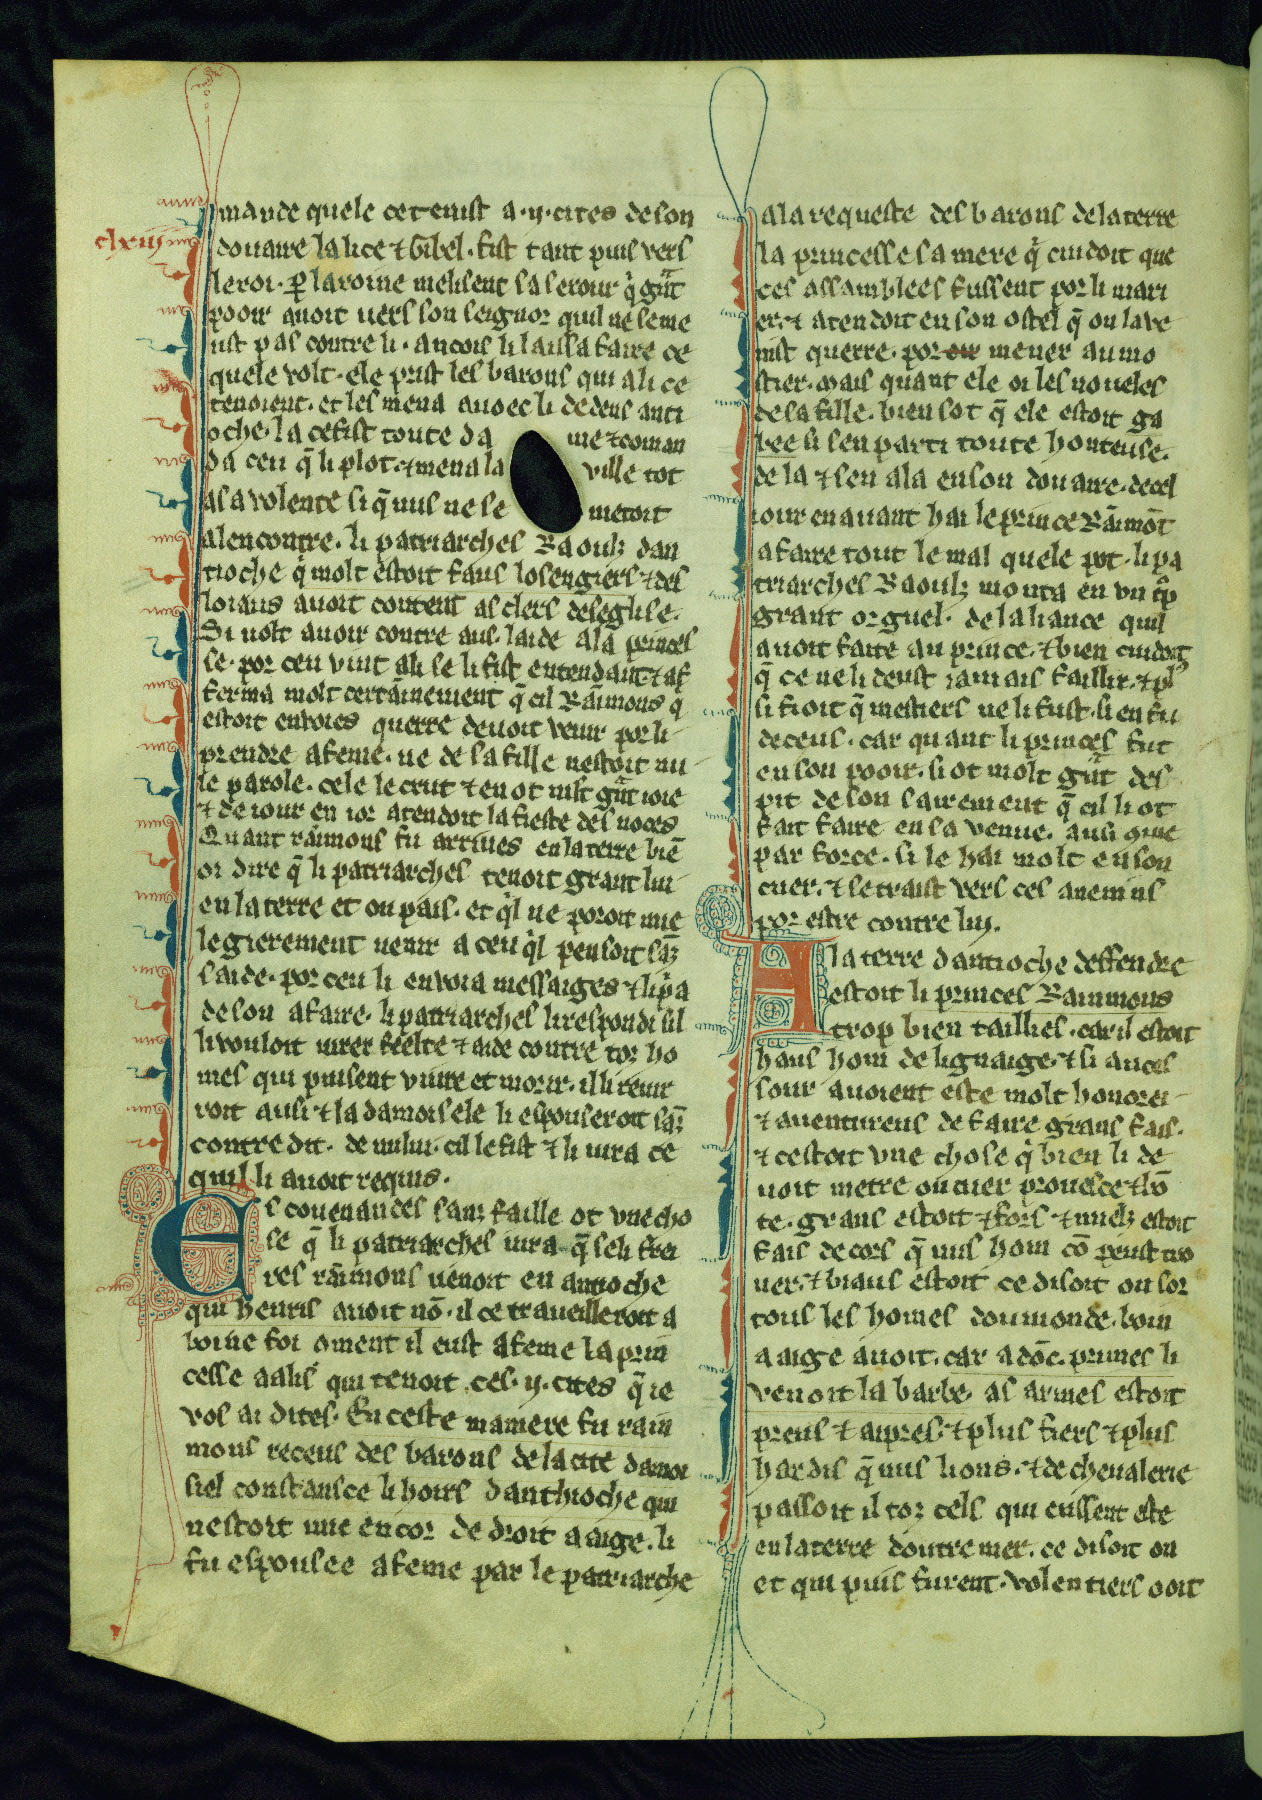 clxiiij
mande quele cetenist a .ij. cites de son
douaire la lice ⁊ Gibel. fist tant puis vers
le roi. ꝑ la roine melisent sa serour q̇ gͣnt
pooir auoit uers son seignor quil ne se me
ist pas contre li. ancois li laissa faire ce
quele volt. ele prist les barons qui a li ce
tenoient. et les mena auoec li dedens anti
oche. la ce fist toute da me ⁊ coman
da ceu q̄ li plot. ⁊ mena la ville tot
a sa volente si q̄ nus ne se metoit
alencontre. li patriarches Raoulz dan
tioche q̇ molt estoit faus losengiers ⁊ des
loiaus auoit content as clers de leglise.
Si uolt auoir contre aus laide a la princes
se. por ceu vint a li se li fist entendant ⁊ af
ferma molt certainement q̄ cil Raimons q̇
estoit enuoies querre deuoit venir por li
prendre a feme. ne de sa fille nestoit nu
le parole. cele le crut ⁊ en ot mlt gͣnt ioie
⁊ de iour en ior atendoit la feste des noces
Quant raimons fu arriues en la terre biē
oi dire q̄ li patriarches tenoit grant liu
en la terre et ou pais. et q̇l ne poroit mie
legierement uenir a ceu q̇l pensoit sāz
saide. por ceu li enuoia messaiges ⁊ li pͥa
de son afaire. li patriarches li respondi sil
li vouloit iurer feelte ⁊ aide contre toz ho
mes qui puisent viure et morir. il li reiur
roit ausi ⁊ la damoisele li espouseroit sāz
contredit. de nului. cil le fist ⁊ li iura ce
quil li auoit requis.
Es couenances sanz faille ot vne cho
se q̄ li patriarches iura q̄ se li frei
res raimons uenoit en antioche
qui henris auoit nō. il ce traueilleroit a
boine foi oment il eust a feme la prin
cesse aalis qui tenoit ces .ij. cites q̄ ie
vos ai dites. En ceste maniere fu rain
mons receus des barons de la cite damoi
siel constansce li hoirs danthioche qui
nestoit mie encor de droit aaige. li
fu espousee a feme par le patriarche
a la requeste des barons de la terre
la princesse sa mere q̇ cuidoit que
ces assamblees fussent por li mari
er. ⁊ atendoit en son ostel q̄ on la ve
nist querre. por eur mener au mo
stier. mais quant ele oi les noueles
de sa fille. bien sot q̄ ele estoit ga
bee si sen parti toute honteuse.
de la ⁊ sen ala en son douaire. de cel
iour en auant hai le prince Raimōt
a faire tout le mal quele pot. li pa
triarches Raoulz monta en vn tͣp
grant orguel. de laliance quil
auoit faite au prince. ⁊ bien cuidoit
q̄ ce ne li deust iamais faillir. ⁊ pl᷒
si fioit q̄ mestiers ne li fust. si en fu
deceus. car quant li princes fut
en son pooir. si ot molt gͣt des
pit de son sairement q̄ cil li ot
fait faire en sa venue. ausi 9me
par force. si le hai molt en son
cuer. ⁊ se traist vers ces anemis
por estre contre luj.
A la terre dantioche deffendre
estoit li princes Raimmons
trop bien taillies. car il estoit
haus hom de lignaige. ⁊ si ances
sour auoient este molt honorei
⁊ auentureus de faire grans fais.
⁊ cestoit vne chose q̇ bien li de
uoit metre ou cuer prouesce ⁊ bō
te. grans estoit ⁊ fors ⁊ miels estoit
fais de cors q̄ nus hom cō peust tro
uer. ⁊ biaus estoit ce disoit on sor
tous les homes dou monde. boin
aaige auoit. car adōc primes li
venoit la barbe. as armes estoit
preus ⁊ aspres. ⁊ plus fiers ⁊ plus
hardis q̄ nus lions. ⁊ de cheualerie
passoit il toz cels qui eussent este
en la terre doutre mer. ce disoit on
et qui puis furent. volentiers ooit